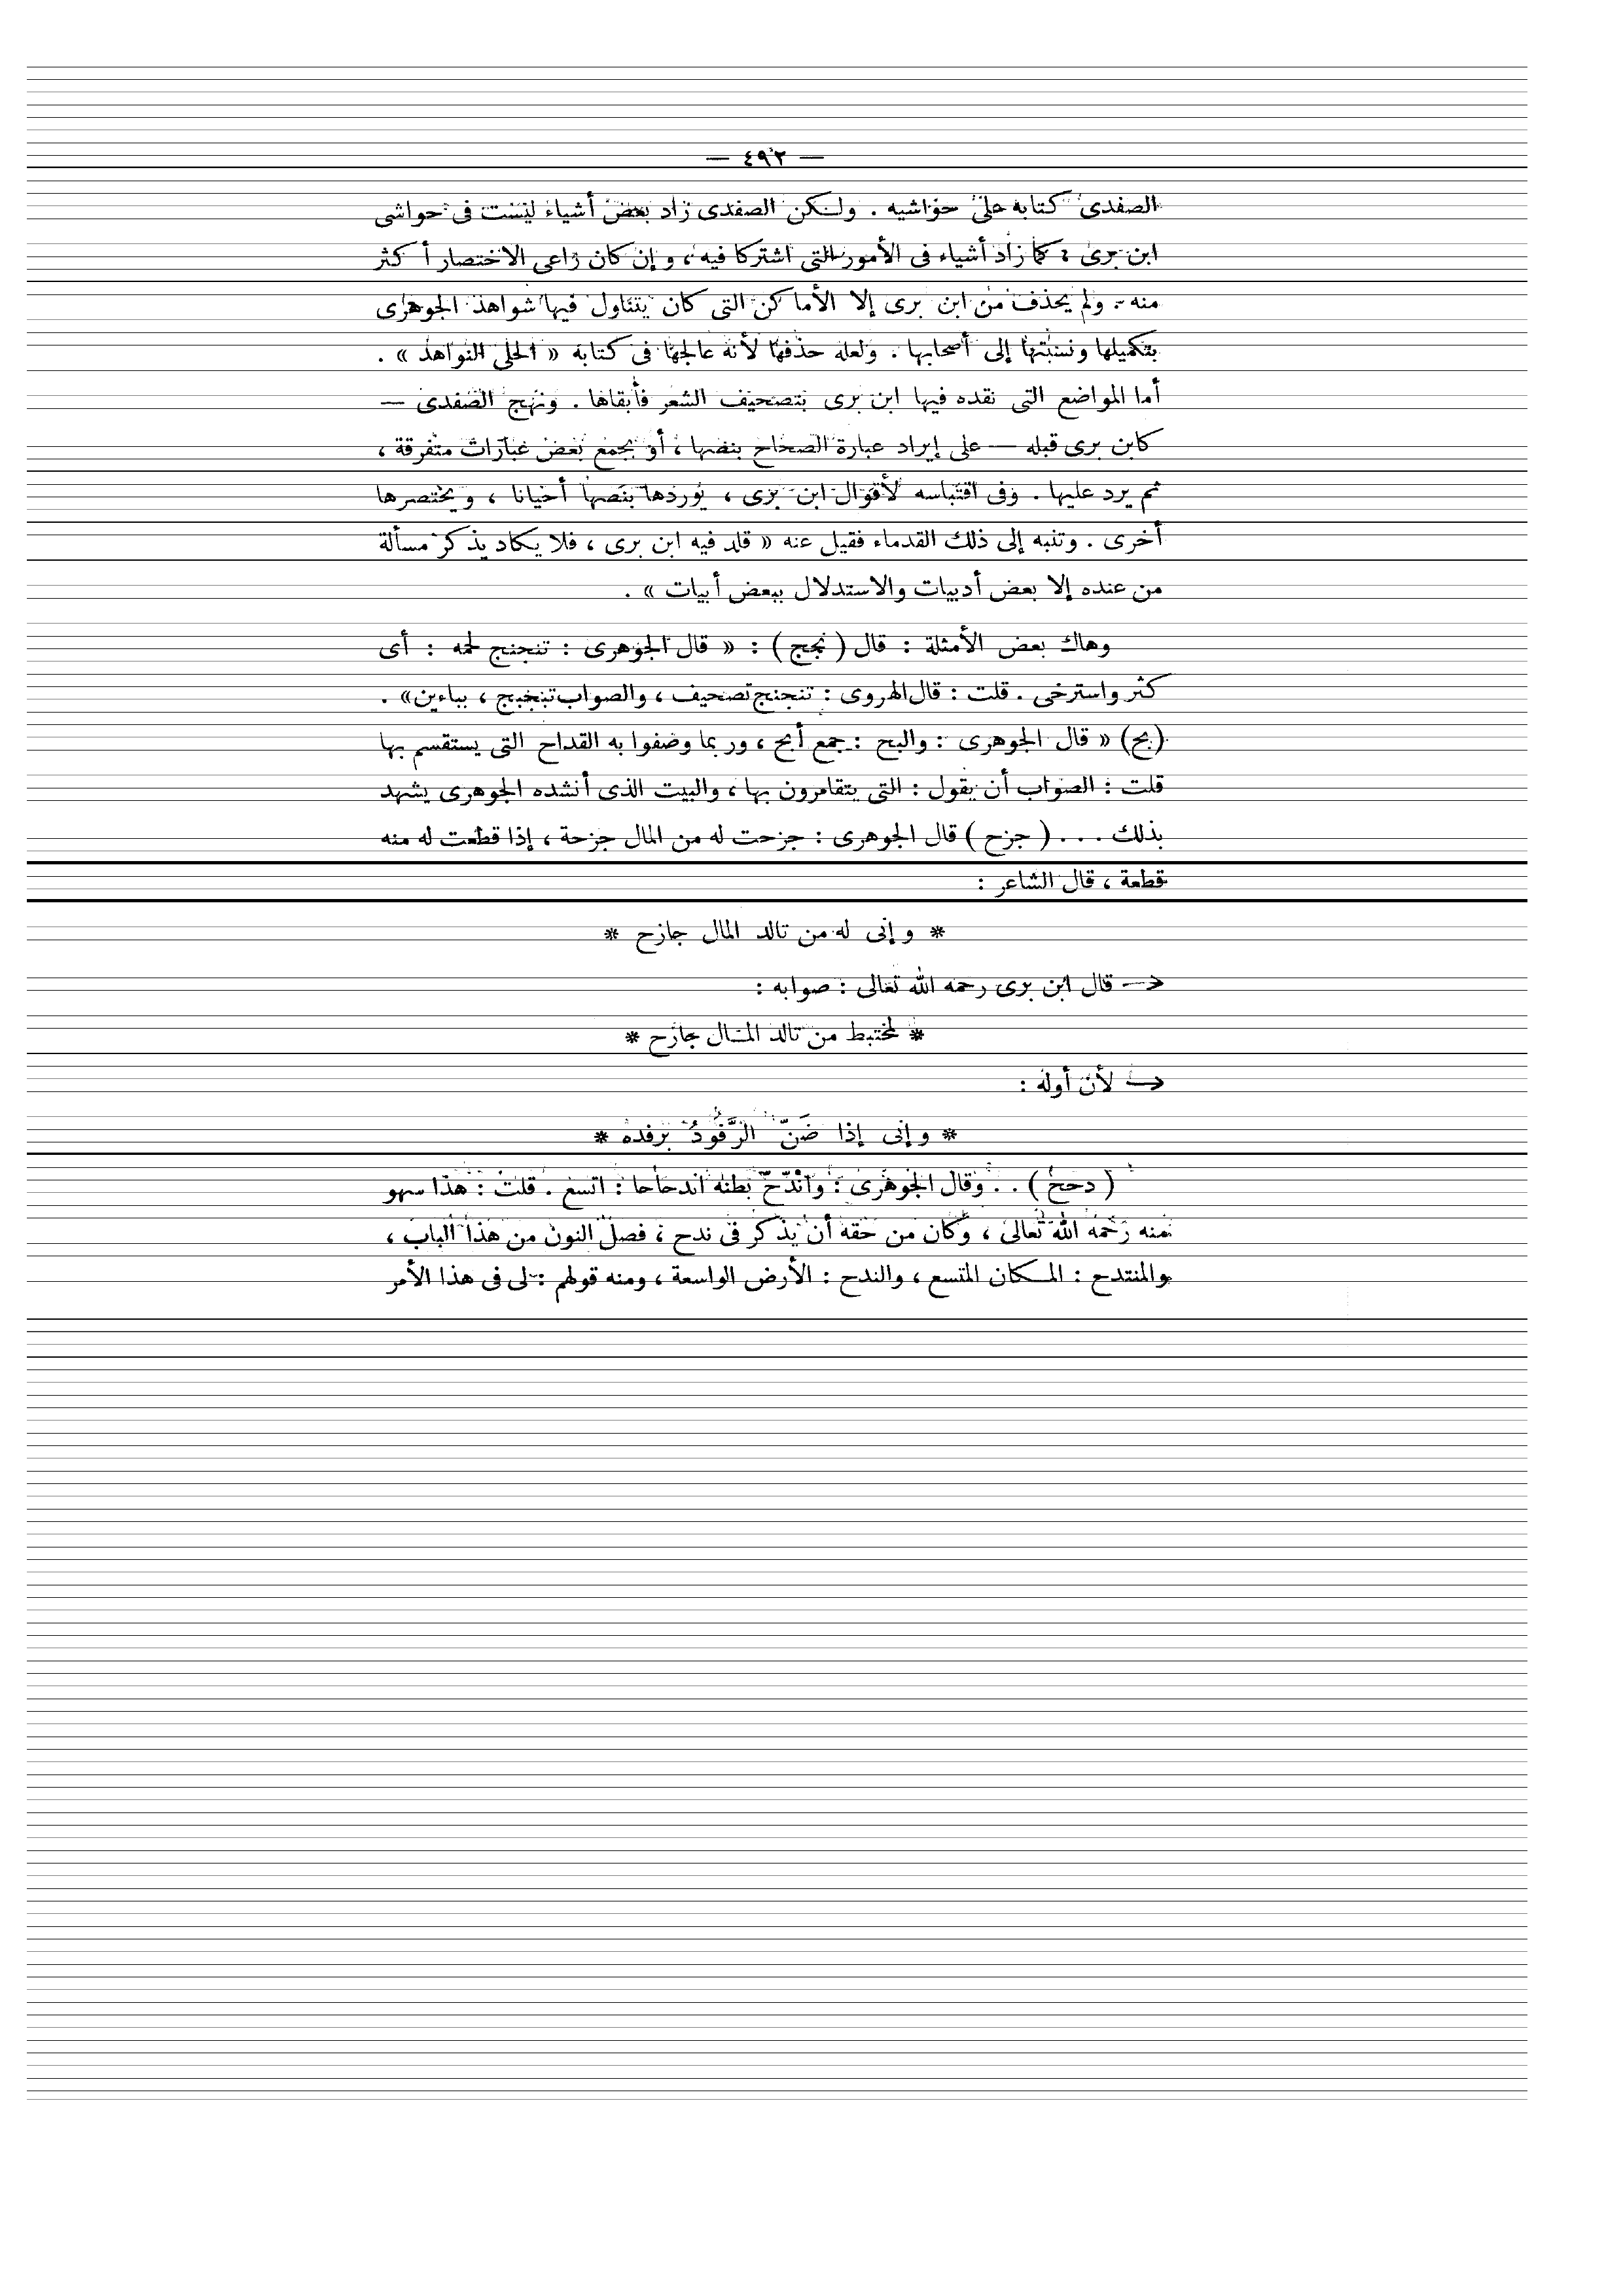 — ٤٩٢ —
الصفدى كتابه على حواشيه . ولكن الصفدى زاد بعض أشياء ليست فى حواشى
ابن برى ، كما زاد أشياء فى الأمور التى اشتركا فيه ، و إن كان راعى الاختصار أكثر
منه . ولم يحذف من ابن برى إلا الأماكن التى كان يتناول فيها شواهد الجوهرى
بتكميلها ونسبتها إلى أصحابها . ولعله حذفها لأنه عالجها فى كتابه « الحلى النواهد » .
أما المواضع التى نقده فيها ابن برى بتصحيف الشعر فأبقاها . ونهج الصفدى —
كابن برى قبله — على إيراد عبارة الصحاح بنصها ، أو بجمع بعض عبارات متفرقة ،
ثم يرد عليها . وفى اقتباسه لأقوال ابن برى ، يوردها بنصها أحيانا ، و يختصرها
أخرى . وتنبه إلى ذلك القدماء فقيل عنه « قلد فيه ابن برى ، فلا يكاد يذكر مسألة
من عنده إلا بعض أدبيات والاستدلال ببعض أبيات » .
وهاك بعض الأمثلة : قال ( نجج ) : « قال الجوهرى : تنجنج لحمه : أى
كثر واسترخى . قلت : قال الهروى : تنجنج تصحيف ، والصواب تبجبج ، بباءين» .
(بح) « قال الجوهرى : والبح : جمع أبح ، ور بما وصفوا به القداح التى يستقسم بها
قلت : الصواب أن يقول : التى يتقامرون بها ، والبيت الذى أنشده الجوهرى يشهد
بذلك . . . ( جزح ) قال الجوهرى : جزحت له من المال جزحة ، إذا قطعت له منه
قطعة ، قال الشاعر :
* و إنى له من تالد المال جازح *
قال ابن برى رحمه الله تعالى : صوابه :
* لمختبط من تالد المال جازح *
لأن أوله :
* و إنى إذا ضَنّ الرَّفُودُ برفده *
( دحح ) . . وقال الجوهرى : واندحّ بطنه اندحاحا : اتسع . قلت : هذا سهو
منه رحمه الله تعالى ، وكان من حقه أن يذكر فى ندح ، فصل النون من هذا الباب ،
والمنتدح : المكان المتسع ، والندح : الأرض الواسعة ، ومنه قولهم : لى فى هذا الأمر